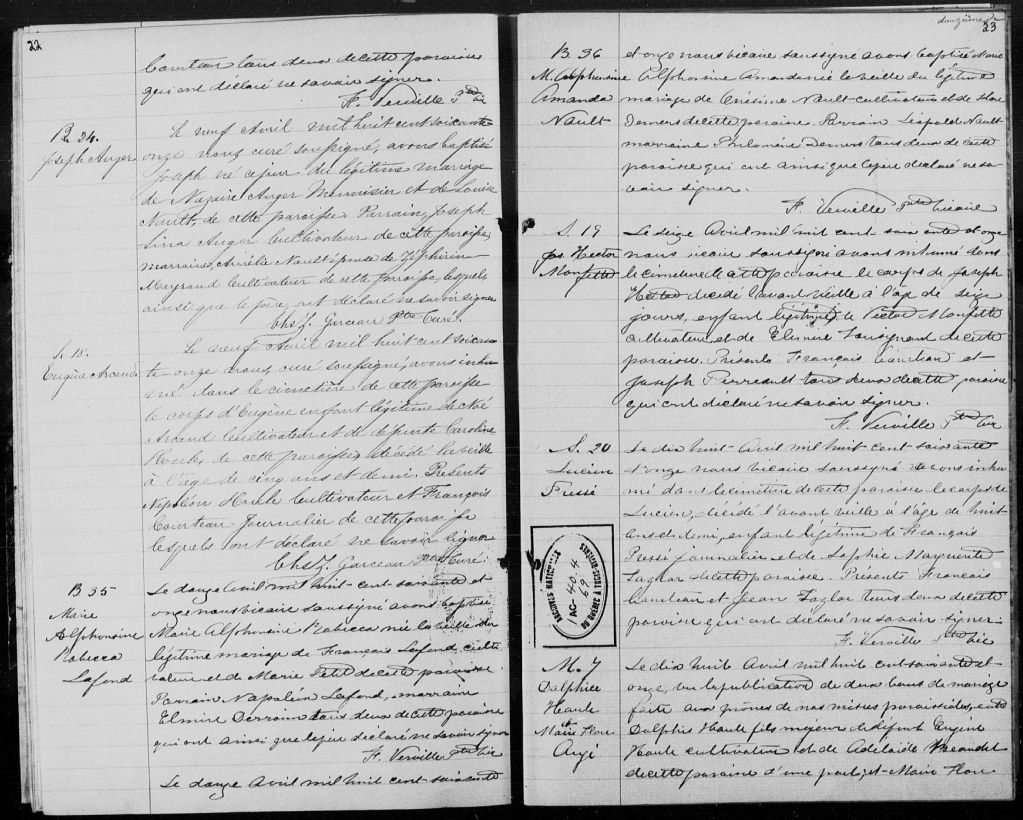 22
Courteau tous deux de cette paroisse
qui ont déclaré ne savoir signer.
F. Verville Ptre Vic
B. 34.
Joseph Auger
Le neuf Avril mil huit cent soixante
onze nous curé soussigné, avons baptisé
Joseph né ce jour du légitime mariage
de Nazaire Auger Menuisier et de Louise
Nault, de cette paroisse. Parrain, Joseph
Auger Cultivateur de cette paroisse,
marraine, Aurélie Nault épouse de Zéphirin
Mayrand Cultivateur de cette paroisse, lesquels
ainsi que le père, ont déclaré ne savoir signer
Chs Z. Garceau Ptre Curé.
S. 18.
Eugène Arcand
Le neuf Avril mil huit cent soixan
te onze nous, curé soussigné, avons inhu
mé dans le cimetière de cette paroisse
le corps d'Eugène enfant légitime de Noé
Arcand Cultivateur et de défunte Caroline
Houle, de cette paroisse, décédé la veille
à l'âge de cinq ans et demi. Présents
Napoléon Houle Cultivateur et François
Courteau Journalier de cette paroisse
lesquels ont déclaré ne savoir signer
Chs Z. Garceau Ptre Curé.
B 35
Marie
Alphonsine
Rebecca
Lafond
Le douze Avril mil huit cent soixante et
onze nous vicaire soussigné avons baptisé
Marie Alphonsine Rebecca née la veille du
légitime mariage de François Lafond culti
vateur et de Marie Petit de cette paroisse.
Parrain Napoléon Lafond, marraine
Elmire tous deux de cette paroisse
qui ont ainsi que le père déclaré ne savoir signer
F. Verville Ptre Vic
Le douze Avril mil huit cent soixante
douzième
23
B 36
M. Alphonsine
Amanda
Nault
et onze nous vicaire soussigné avons baptisé Marie
Alphonsine Amanda née la veille du légitime
mariage de Nault cultivateur et de Flore
Demers de cette paroisse. Parrain Léopold Nault
marraine Philomène Demers tous deux de cette
paroisse qui ont ainsi que le père déclaré ne sa
voir signer.
F. Verville Ptre Vicaire
S. 19
Jos. Hector
Monfette
Le seize Avril mil huit cent soixante et onze
nous vicaire soussigné avons inhumé dans
le cimetière de cette paroisse le corps de Joseph
Hector décédé l'avant veille à l'âge de seize
jours, enfant légitime de Victor Monfette
cultivateur et de Elmire Lavignant de cette
paroisse. Présents François Gaudreau et
Joseph Perreault tous deux de cette paroisse
qui ont déclaré ne savoir signer.
F. Verville Ptre Vic
S. 20
Lucien
Pressé
Le dix huit Avril mil huit cent soixante
et onze nous vicaire soussigné avons inhu
mé dans le cimetière de cette paroisse le corps de
Lucien, décédé l'avant veille à l'âge de huit
ans et demi, enfant légitime de François
Pressé journalier et de Sophie Marguerite
Taylor de cette paroisse. Présents François
Gaudreau et Jean Taylor tous deux de cette
paroisse qui ont déclaré ne savoir signer.
F. Verville Ptre Vic
ARCHIVES NATIONALES
DU QUÉBEC À TROIS-RIVIÈRES
1AC-404
69
M. 7
Dolphice
Houle
&
Marie Flore
Augé
Le dix huit Avril mil huit cent soixante et
onze, vu la publication de deux bans de mariage
faite aux prônes de nos messes paroissiales, entre
Dolphis Houle fils mineur de défunt Eugène
Houle cultivateur et de Adelaïde
de cette paroisse d'une part; et Marie Flore